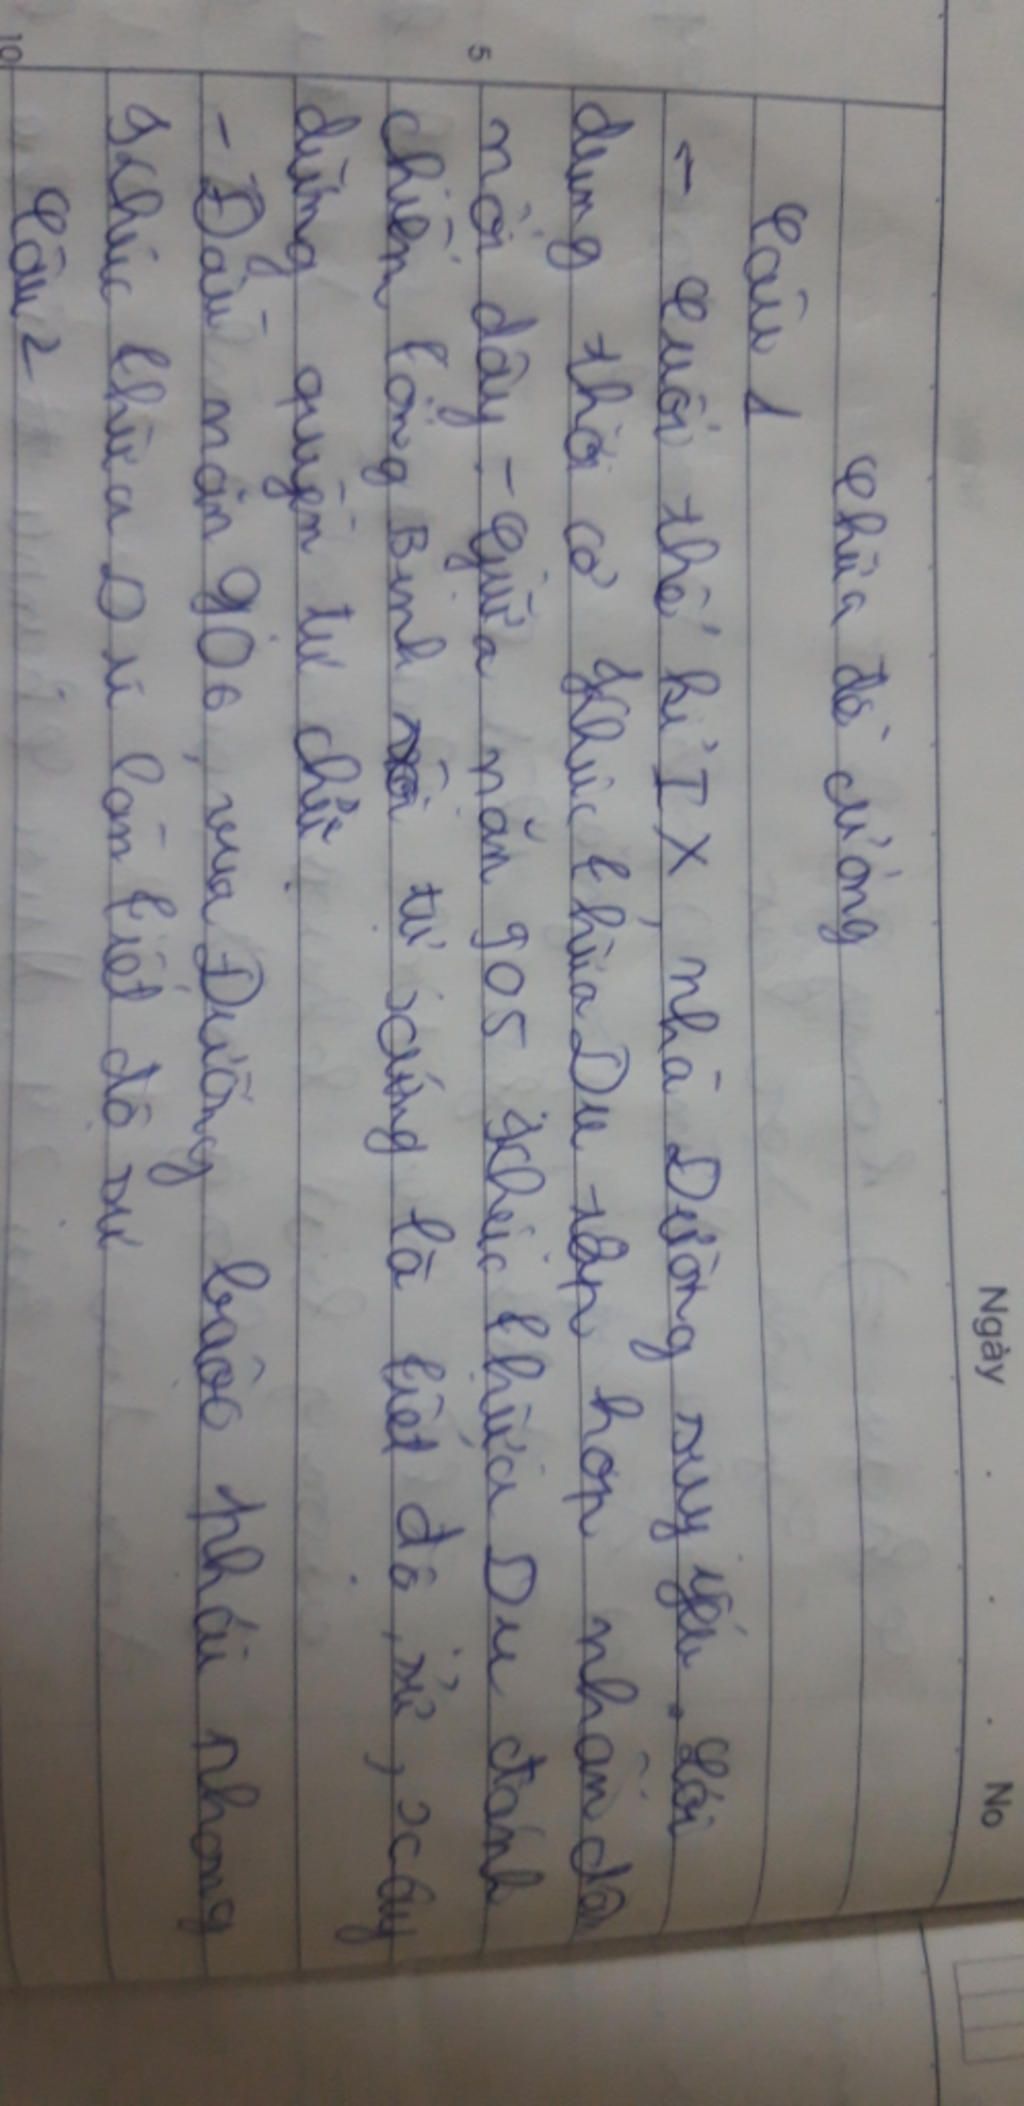 Ngày No
Chữa đề cương
Câu 1
- Cuối thế kỉ IX, nhà Đường suy yếu. Lợi
dụng thời cơ Khúc Thừa Dụ tập hợp nhân dân
nổi dậy - Giữa năm 905 Khúc Thừa Dụ đánh
5
chiếm Tống Bình rồi tự xưng là tiết độ sứ, xây
dựng quyền tự chủ.
- Đầu năm 906, vua Đường buộc phải phong
Khúc Thừa Dụ làm tiết độ sứ
Câu 2
10